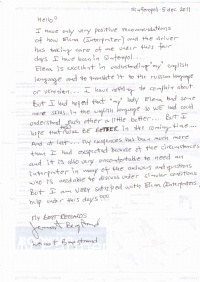 Simferopol 5 dec 2011
Hello!
I have only very positive recommendations
of how Elena (Interpreter) and the driver
has taking care of me under this four
days I have been in Simferopol...
Elena is excellent in understanding "my" english
language and to translate it to the russian language
or ukrainian... I have nothing to complain about
But I had hoped that "my" lady Elena had some
more skills in the english language so WE had could
understand each other a little better... But I
hope that will BE BETTER in the coming time...
And at last... my expences has been much more
than I had exspected because of the circumstances
and it is also very uncomfortable to need an
interpreter in many of the cituations and questions
who is needable to discuss under similar conditions
But I am very satisfied with Elena (Interpreters)
help under this days!!!
My BEST REGARDS
Lennart Bergstrand
Lennart Bergstrand